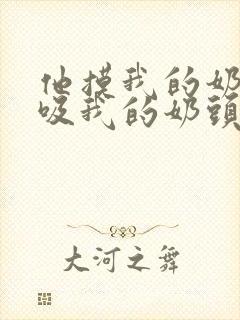 他摸我的奶
吸我的奶頭
大河之舞